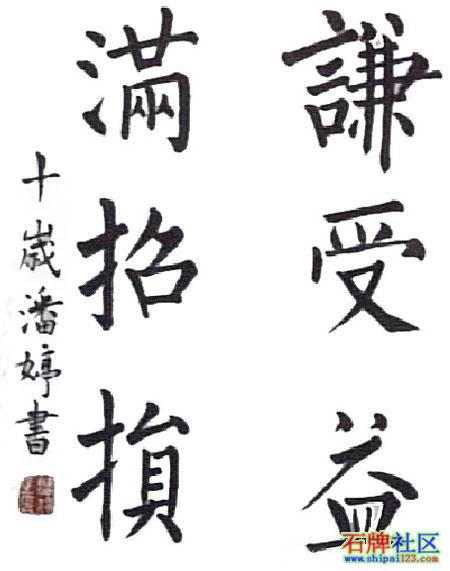 謙受益
滿招損
十歲潘婷書
石牌社区
www.shipai123.com